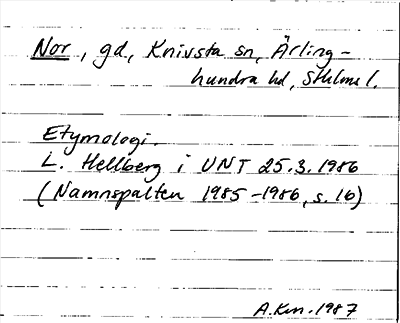 Nor, gd, Knivsta sn, Ärling-
hundra hd, Sthlms l.
Etymologi.
L. Hellberg i UNT 25.3.1986
(Namnspalten 1985-1986, s. 16)
A.Km. 1987